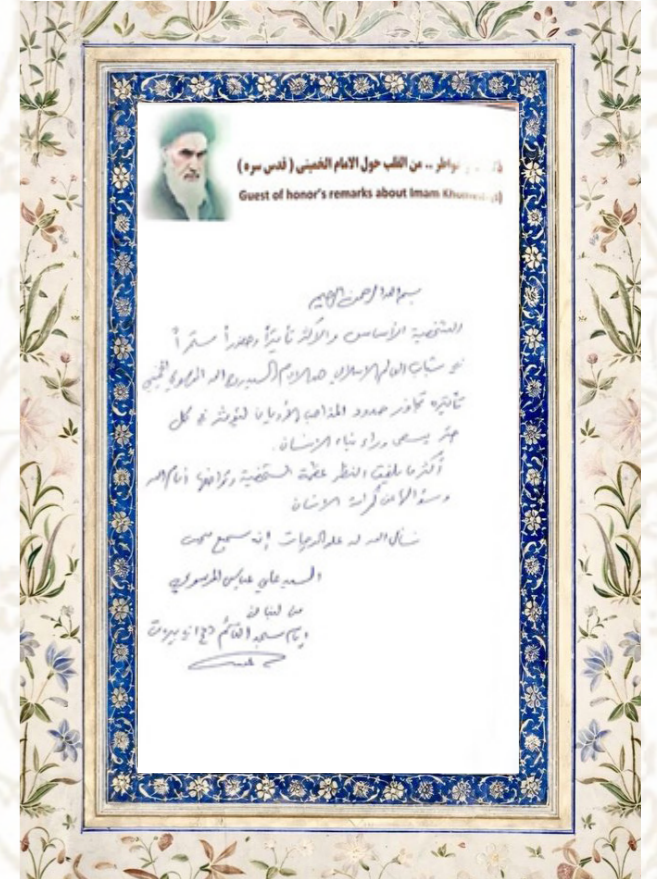 خواطر .. من القلب حول الامام الخميني ( قدس سره )
Guest of honor's remarks about Imam
بسم الله الرحمن الرحيم
الشخصية الأساس والأكثر تأثيراً وحضوراً مستمراً
نحو شباب العالم الاسلامي هو الامام السيد روح الله الموسوي الخميني
تأثيره تجاوز حدود المذاهب الأديان ليؤثر في كل
حر يسعى وراء بناء الانسان.
أكثر ما يلفت النظر عظمة الشخصية وتواضعها أمام الله
وسؤالها عن كرامة الانسان
نسأل الله له علو الدرجات إنه سميع مجيب
السيد علي عباس الموسوي
من لبنان
إمام مسجد القائم بيروت